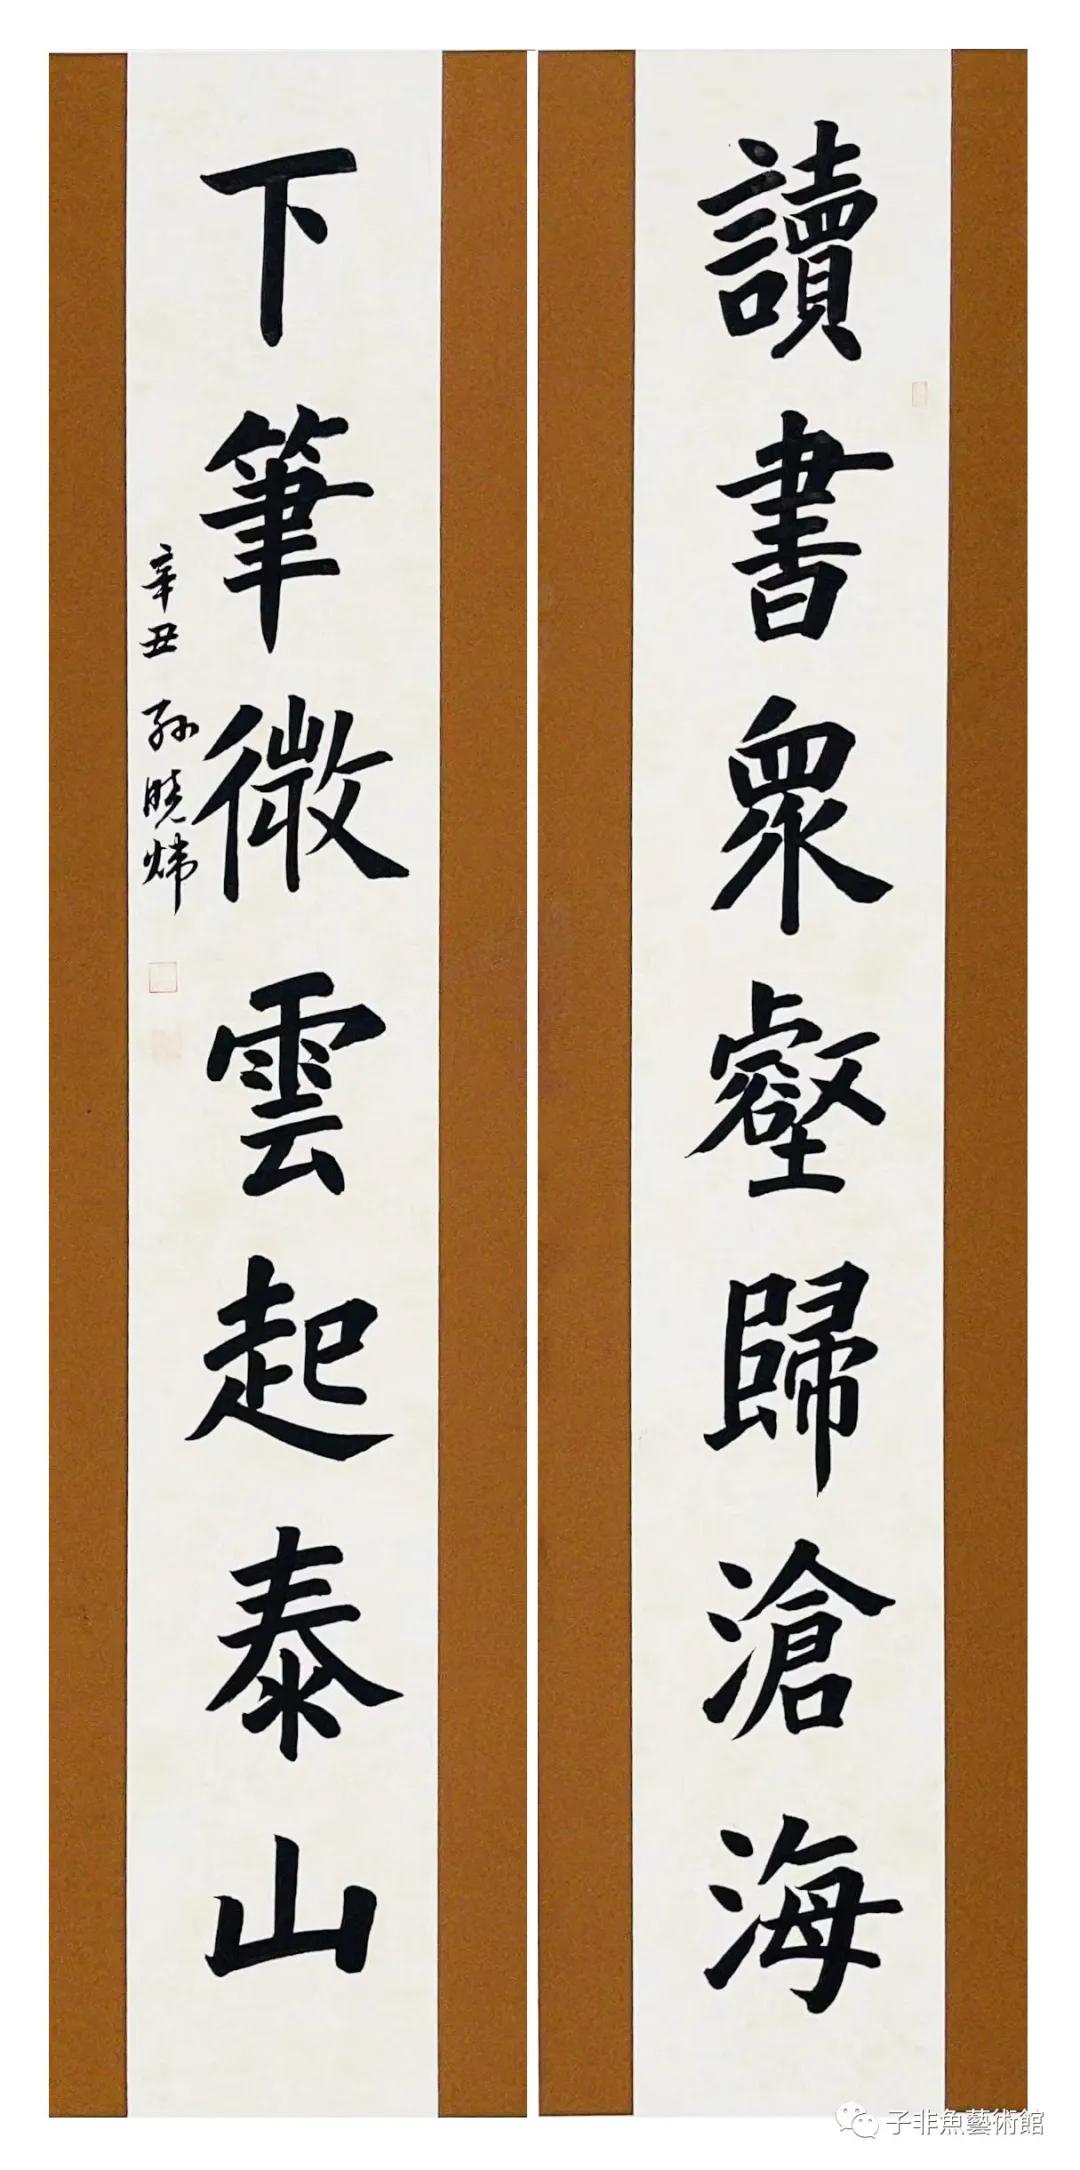 讀書衆壑歸滄海
下筆微雲起泰山
辛丑 孙晓炜
子非魚藝術館